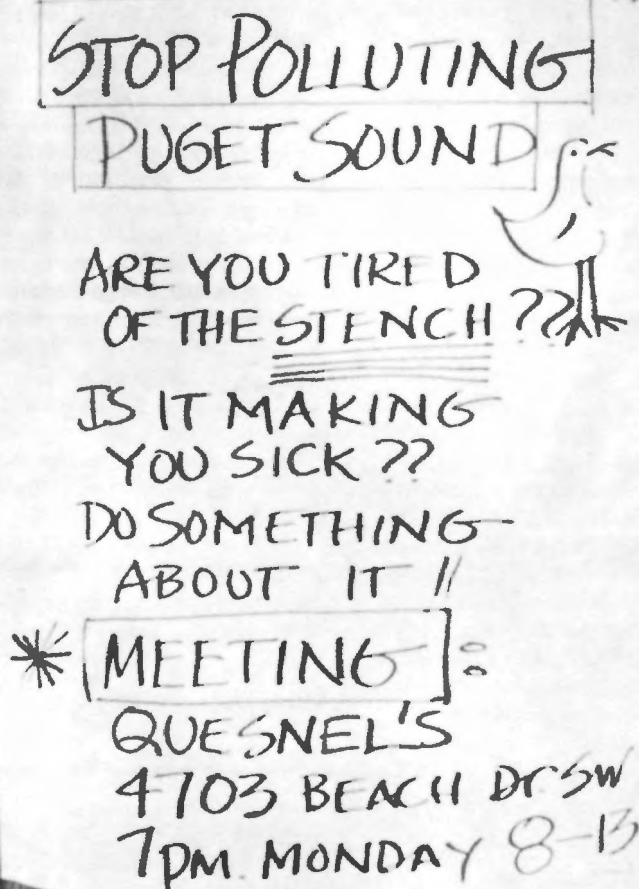 STOP POLLUTING
PUGET SOUND
ARE YOU TIRED
OF THE STENCH ??
IS IT MAKING
YOU SICK ??
DO SOMETHING
ABOUT IT !!
* MEETING :
QUESNEL'S
4703 BEACH Dr SW
7PM MONDAY 8-13